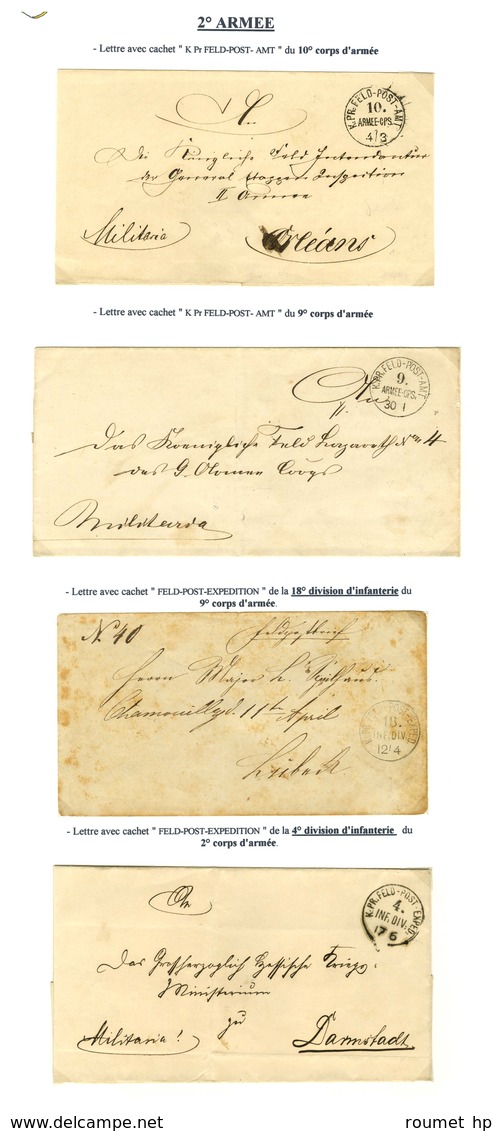 2° ARMEE
- Lettre avec cachet " K Pr FELD-POST- AMT " du 10° corps d'armée
An
K.PR.FELD-POST-AMT
10.
ARMEE-CPS.
4/3
Die Königliche Feld Intendantur
der General Etappen Inspektion
II Armee
Militaria
Orléans
- Lettre avec cachet " K Pr FELD-POST- AMT " du 9° corps d'armée
An
K.PR.FELD-POST-AMT
9.
ARMEE-CPS.
30 1
Das Koenigliche Feld Lazareth No 4
des 9 Corps
Militaria
- Lettre avec cachet " FELD-POST-EXPEDITION " de la 18° division d'infanterie du
9° corps d'armée.
N. 40
Feldpostbrief
Herrn Major
11ten April
18.
INF.DIV.
12/4
Lübeck.
- Lettre avec cachet " FELD-POST-EXPEDITION " de la 4° division d'infanterie du
2° corps d'armée.
An
K.PR.FELD-POST-EXPED.
4.
INF.DIV.
17 6
Das Grossherzoglich Hessische Kriegs-
Ministerium
zu
Militaria!
Darmstadt.
roumet hp